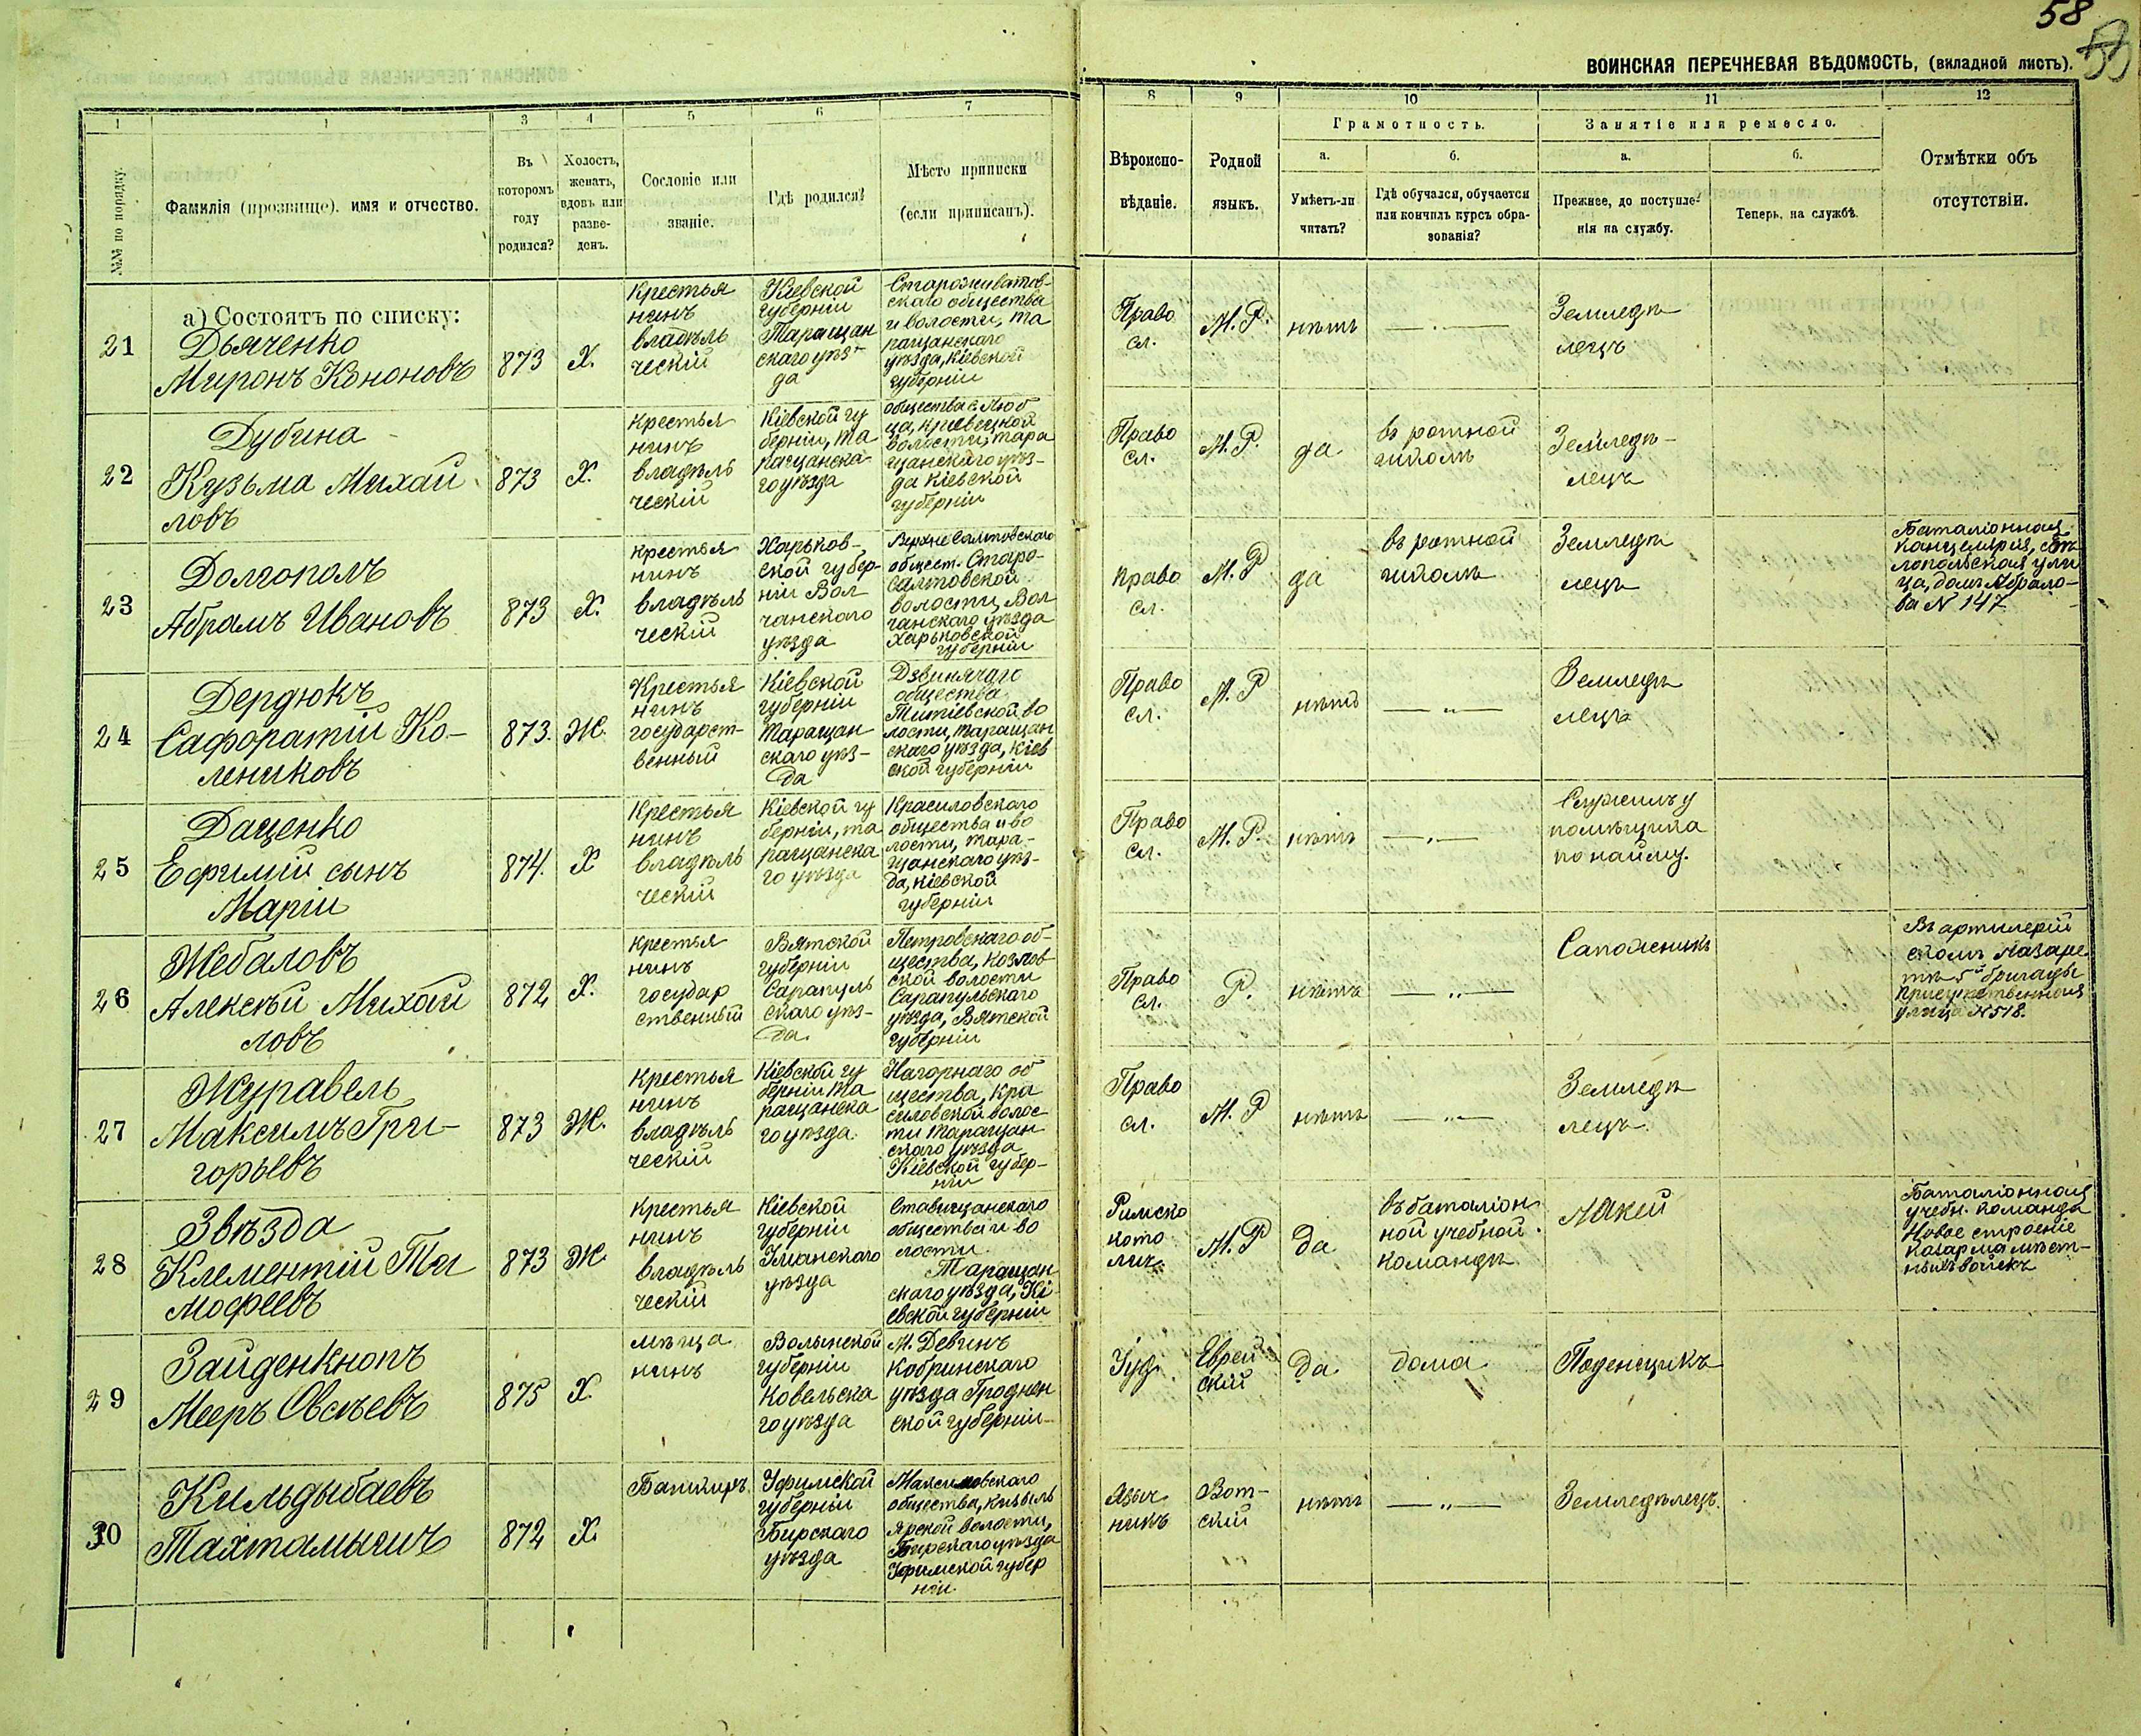 58
59
ВОИНСКАЯ ПЕРЕЧНЕВАЯ ВѢДОМОСТЬ, (вкладной листъ).
1
1
3
4
5
6
7
8
9
10
11
12
№№ по порядку.
Фамилія (прозвище). имя и отчество.
Въ
которомъ
году
родился?
Холостъ,
женатъ,
вдовъ или
разве-
денъ.
Сословіе или
званіе.
Гдѣ родился?
Мѣсто приписки
(если приписанъ).
Вѣроиспо-
вѣданіе.
Родной
языкъ.
Грамотность.
а.
Умѣетъ-ли
читать?
б.
Гдѣ обучался, обучается
или кончилъ курсъ обра-
зованія?
Занятіе или ремесло.
а.
Прежнее, до поступле-
нія на службу.
б.
Теперь, на службѣ.
Отмѣтки объ
отсутствіи.
а) Состоятъ по списку:
21
Дьяченко
Миронъ Кононовъ
873
Х.
Крестья
нинъ
владѣль
ческій
Кіевской
губерніи
Таращан
скаго уѣз-
да
Староживотов-
скаго общества
и волости, та
ращанскаго
уѣзда, Кіевской
губерніи
Право
сл.
М. Р.
нѣтъ
— „ —
Земледѣ
лецъ
22
Дубина
Кузьма Михай
ловъ
873
Х.
крестья
нинъ
владѣль
ческій
Кіевской гу
берніи, та
ращанска
го уѣзда
общества с. Люб
ца, кривецкой
волости, тара
щанскаго уѣз-
да Кіевской
губерніи
Право
Сл.
М. Р.
да
въ ротной
школѣ
Земледѣ-
лецъ
23
Долгополъ
Абрамъ Ивановъ
873
Х.
крестья
нинъ
владѣль
ческій
Харьков-
ской губер-
ніи Вол
чанскаго
уѣзда
Верхне Салтовскаго
общест. Старо-
Салтовской
волости, Вол
чанскаго уѣзда
Харьковской
губерніи
право
сл.
М. Р
да
въ ротной
школѣ
Земледѣ
лецъ
Баталіонная
канцелярія,
лопольская ули
ца, домъ Абрамо-
ва № 147
24
Дердюкъ
Сафоратій Ко-
лениковъ
873.
Ж.
Крестья
нинъ
государст-
венный
Кіевской
губерніи
Таращан
скаго уѣз-
да
Дзвинячаго
общества
Титіевской во
лости, таращан
скаго уѣзда, Кіев
ской губерніи
Право
Сл.
М. Р
нѣтъ
— „ —
Земледѣ
лецъ
25
Даценко
Ефимій сынъ
Маріи
874.
Х
Крестья
нинъ
владѣль
ческій
Кіевской гу
берніи, та
ращанска
го уѣзда
Красиловскаго
общества и во
лости, тара-
щанскаго уѣз-
да, Кіевской
губерніи
Право
Сл.
М. Р.
нѣтъ
— „ —
Служилъ у
помѣщика
по найму.
26
Жебаловъ
Алексѣй Михай
ловъ
872
Х.
крестья
нинъ
государ
ственный
Вятской
губерніи
Сарапуль
скаго уѣз-
да.
Петровскаго об-
щества, Козлов
ской волости
Сарапульскаго
уѣзда, Вятской
губерніи
Право
Сл.
Р.
нѣтъ
— „ —
Сапожникъ
Въ артилерій
скомъ лазаре
тѣ 5й бригады
Присутственная
улица № 518.
27
Журавель
Максимъ Гри-
горьевъ
873
Ж.
Крестья
нинъ
владѣль
ческій
Кіевской гу
берніи Та
ращанска
го уѣзда.
Нагорнаго об
щества, Кра
силовской волос-
ти Таращан
скаго уѣзда
Кіевской губер-
ніи
Право
сл.
М. Р
нѣтъ
— „ —
Земледѣ
лецъ.
28
Звѣзда
Клементій Ти
мофеевъ
873
Ж
крестья
нинъ
владѣль
ческій
Кіевской
губерніи
Уманскаго
уѣзда
Ставищанскаго
общества и во
лости.
Таращан
скаго уѣзда, Кі
евской губерніи
Римско
като
лич.
М. Р
да
въ баталіон
ной учебной
командѣ
Лакей
Баталіонная
учебн. команда
Новое строеніе
казарма мѣст-
ныхъ войскъ
29
Зайденкнопъ
Мееръ Овсѣевъ
875
Х
мѣща
нинъ
Волынской
губерніи
Ковельска
го уѣзда
М. Девинъ
Кобринскаго
уѣзда Гроднен
ской губерніи
Іуд.
Еврей
скій
да
дома
Поденщикъ
30
Кильдыбаевъ
Тахтамышъ
872
Х
Башкиръ
Уфимской
губерніи
Бирскаго
уѣзда
Максимовскаго
общества, Кызыль
ярской волости,
Бирскаго уѣзда
Уфимской губер
ніи
Языч
никъ
Вот-
скій
нѣтъ
— „ —
Земледѣлецъ.